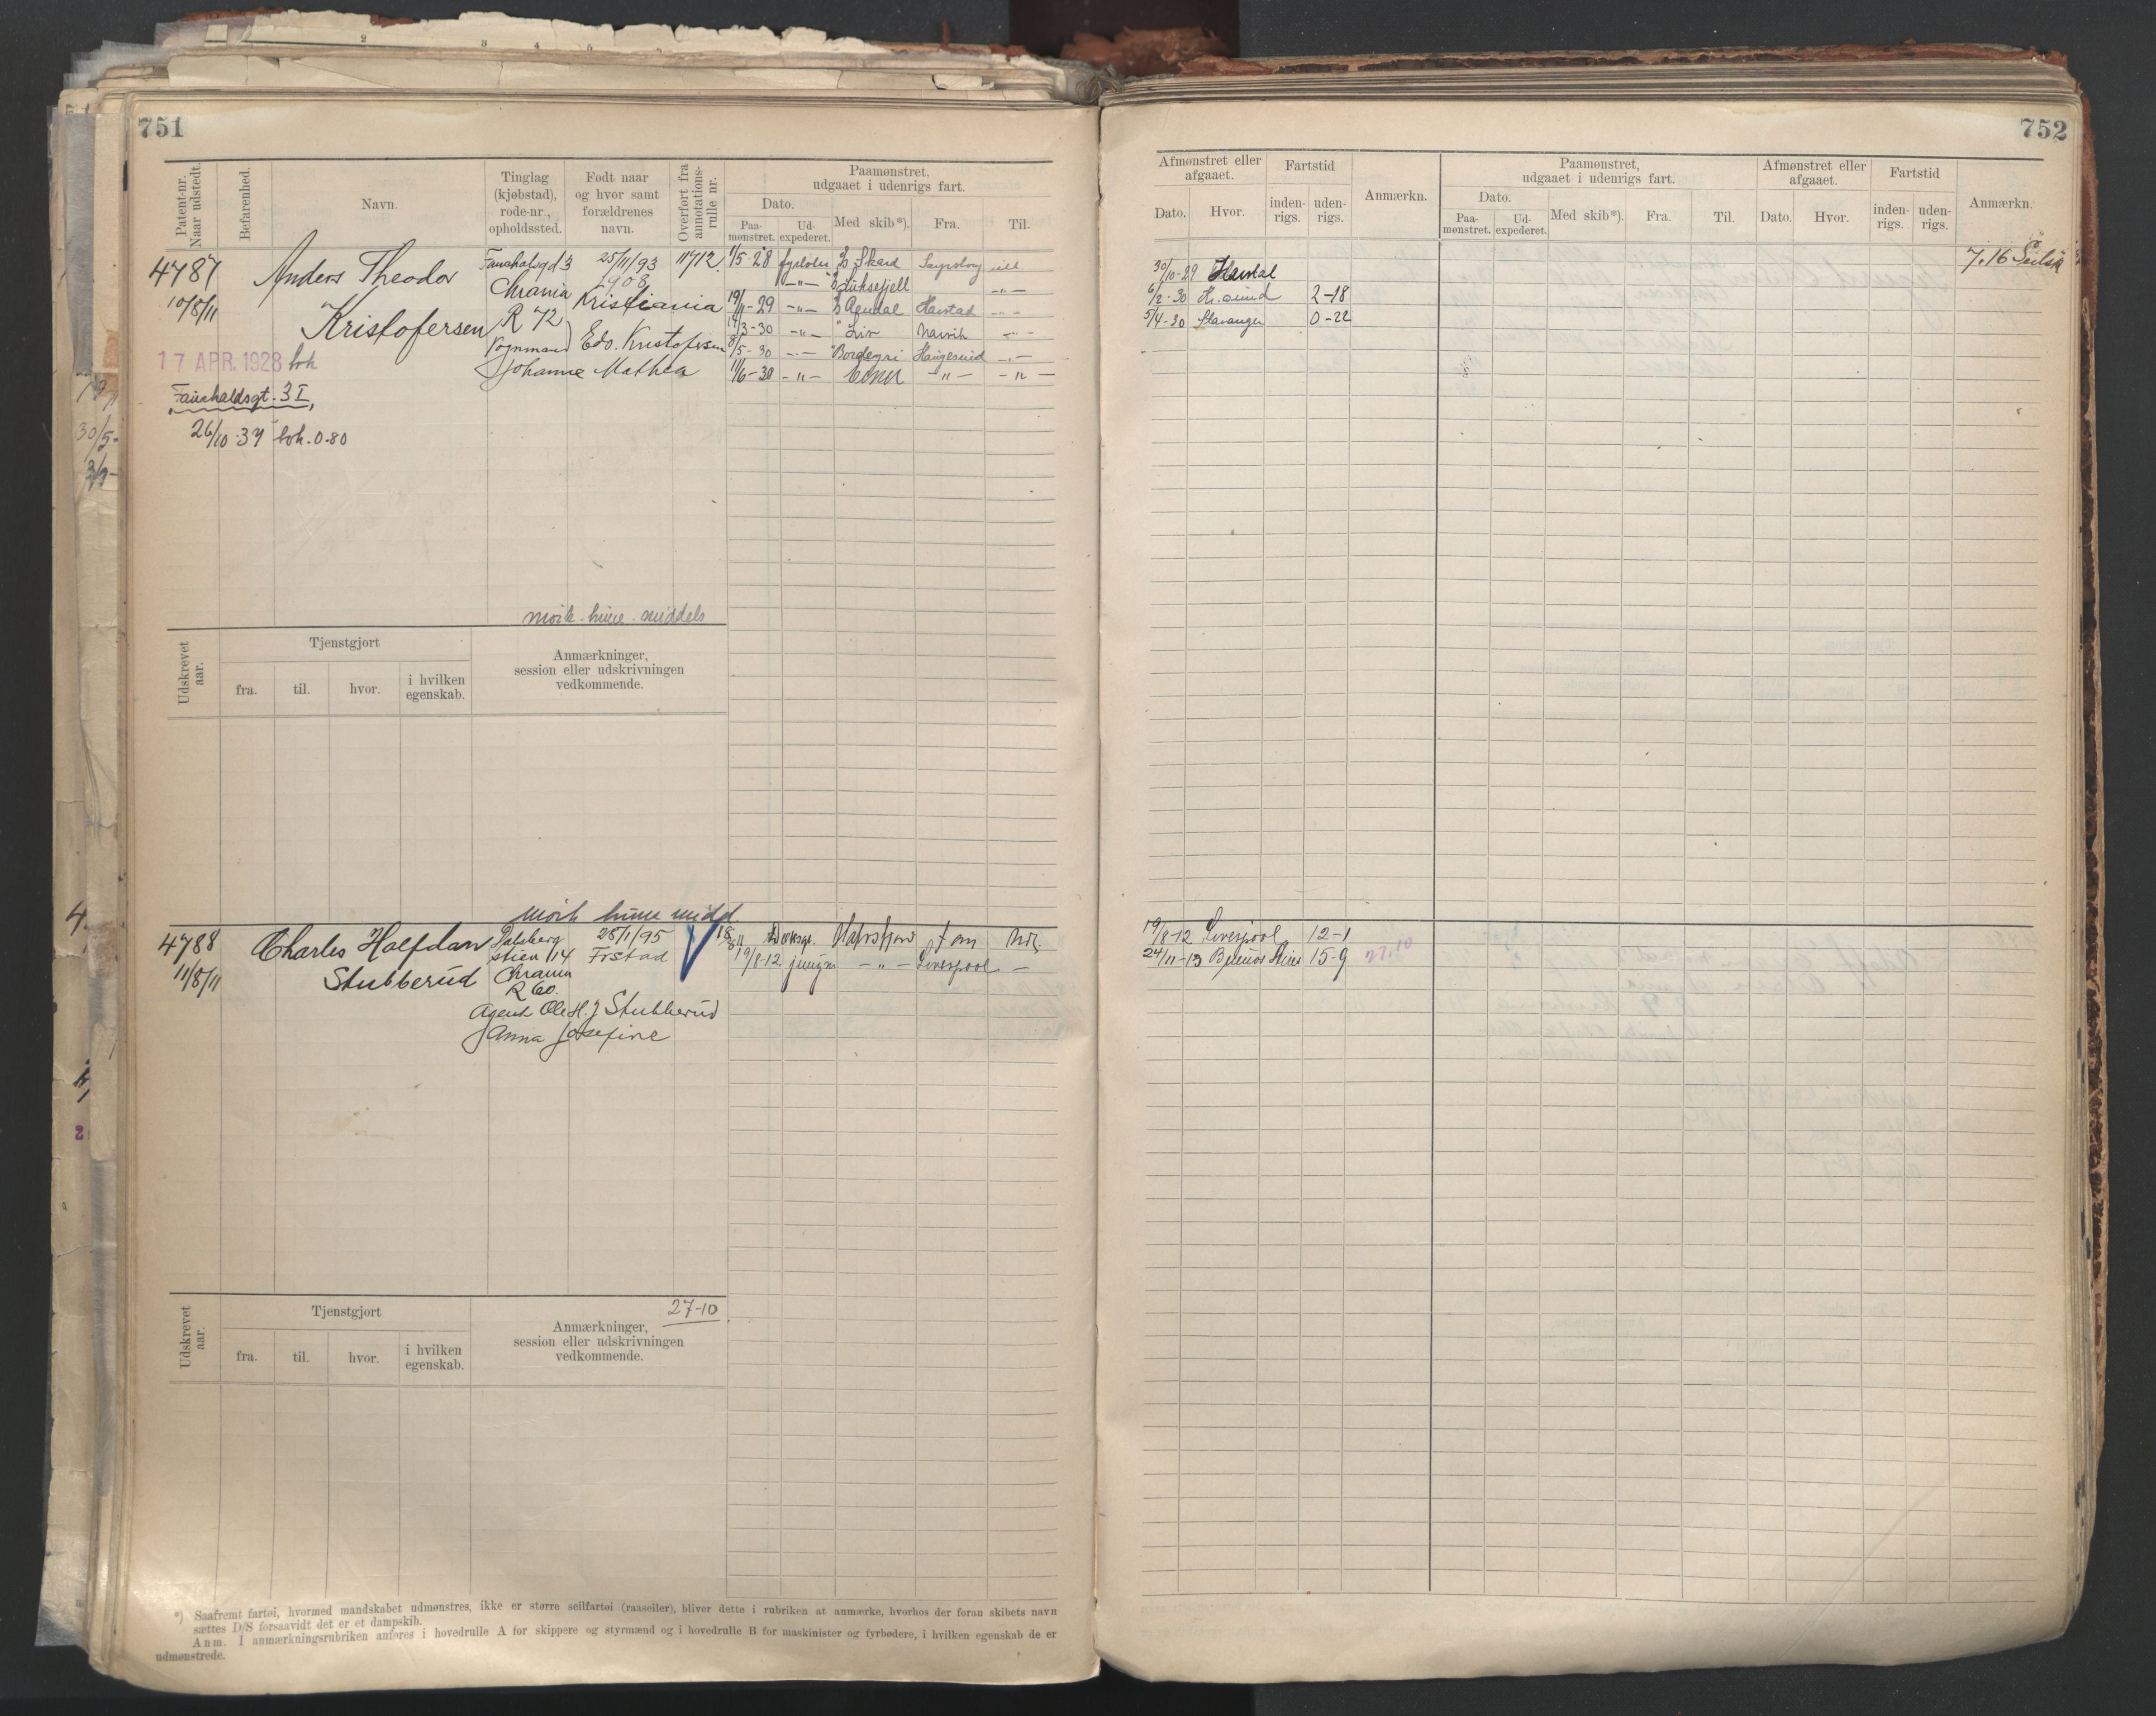 751
Patent-nr. Naar udstedt.
Befarenhed.
Navn.
Tinglag (kjøbstad), rode-nr., opholdssted.
Født naar og hvor samt forældrenes navn.
Overført fra annotations-rulle nr.
Paamønstret, udgaaet i udenrigs fart.
Dato.
Paa-mønstret.
Ud-expederet.
Med skib*).
Fra.
Til.
4787
10/8/11
Anders Theodor
Kristofersen
Chrania
R 72
25/11/93
Kristiania
Edv. Kristofersen
Johanne Mathea
11712
17 APR. 1928
Fauchaldsgt. 3 I
26/10-37
1/5-28
Skard
19/11-29 Agndal Harstad
17/3-30 Liv Narvik
8/5-30 Haugesund
11/6-30
mørk. hue. middels
Udskrevet aar.
Tjenstgjort
fra.
til.
hvor.
i hvilken egenskab.
Anmærkninger, session eller udskrivningen vedkommende.
mørk hue midd.
4788
11/8/11
Charles Halfdan
Stubberud
stien 14
Chrania
R 60.
28/1/95
Frstad
Agent Ole H. J Stubberud
Anna Josefine
18/8-11 Hafrsfjord
19/8-12 jungm - " - Liverpool -
27-10
Udskrevet aar.
Tjenstgjort
fra.
til.
hvor.
i hvilken egenskab.
Anmærkninger, session eller udskrivningen vedkommende.
*) Saafremt fartøi, hvormed mandskabet udmønstres, ikke er større seilfartøi (raaseiler), bliver dette i rubriken at anmærke, hvorhos der foran skibets navn
sættes D/S forsaavidt det er et dampskib.
Anm. I anmærkningsrubriken anføres i hovedrulle A for skippere og styrmænd og i hovedrulle B for maskinister og fyrbødere, i hvilken egenskab de er
udmønstrede.
752
Afmønstret eller afgaaet.
Dato.
Hvor.
Fartstid
inden-rigs.
uden-rigs.
Anmærkn.
Paamønstret, udgaaet i udenrigs fart.
Dato.
Paa-mønstret.
Ud-expederet.
Med skib*).
Fra.
Til.
Afmønstret eller afgaaet.
Dato.
Hvor.
Fartstid
inden-rigs.
uden-rigs.
Anmærkn.
30/10-29
6/2-30 Kr.sund 2-18
5/4-30 Stavanger 0-22
19/8-12 Liverpool 12-1
24/11-13 Buenos Aires 15-9 27.10